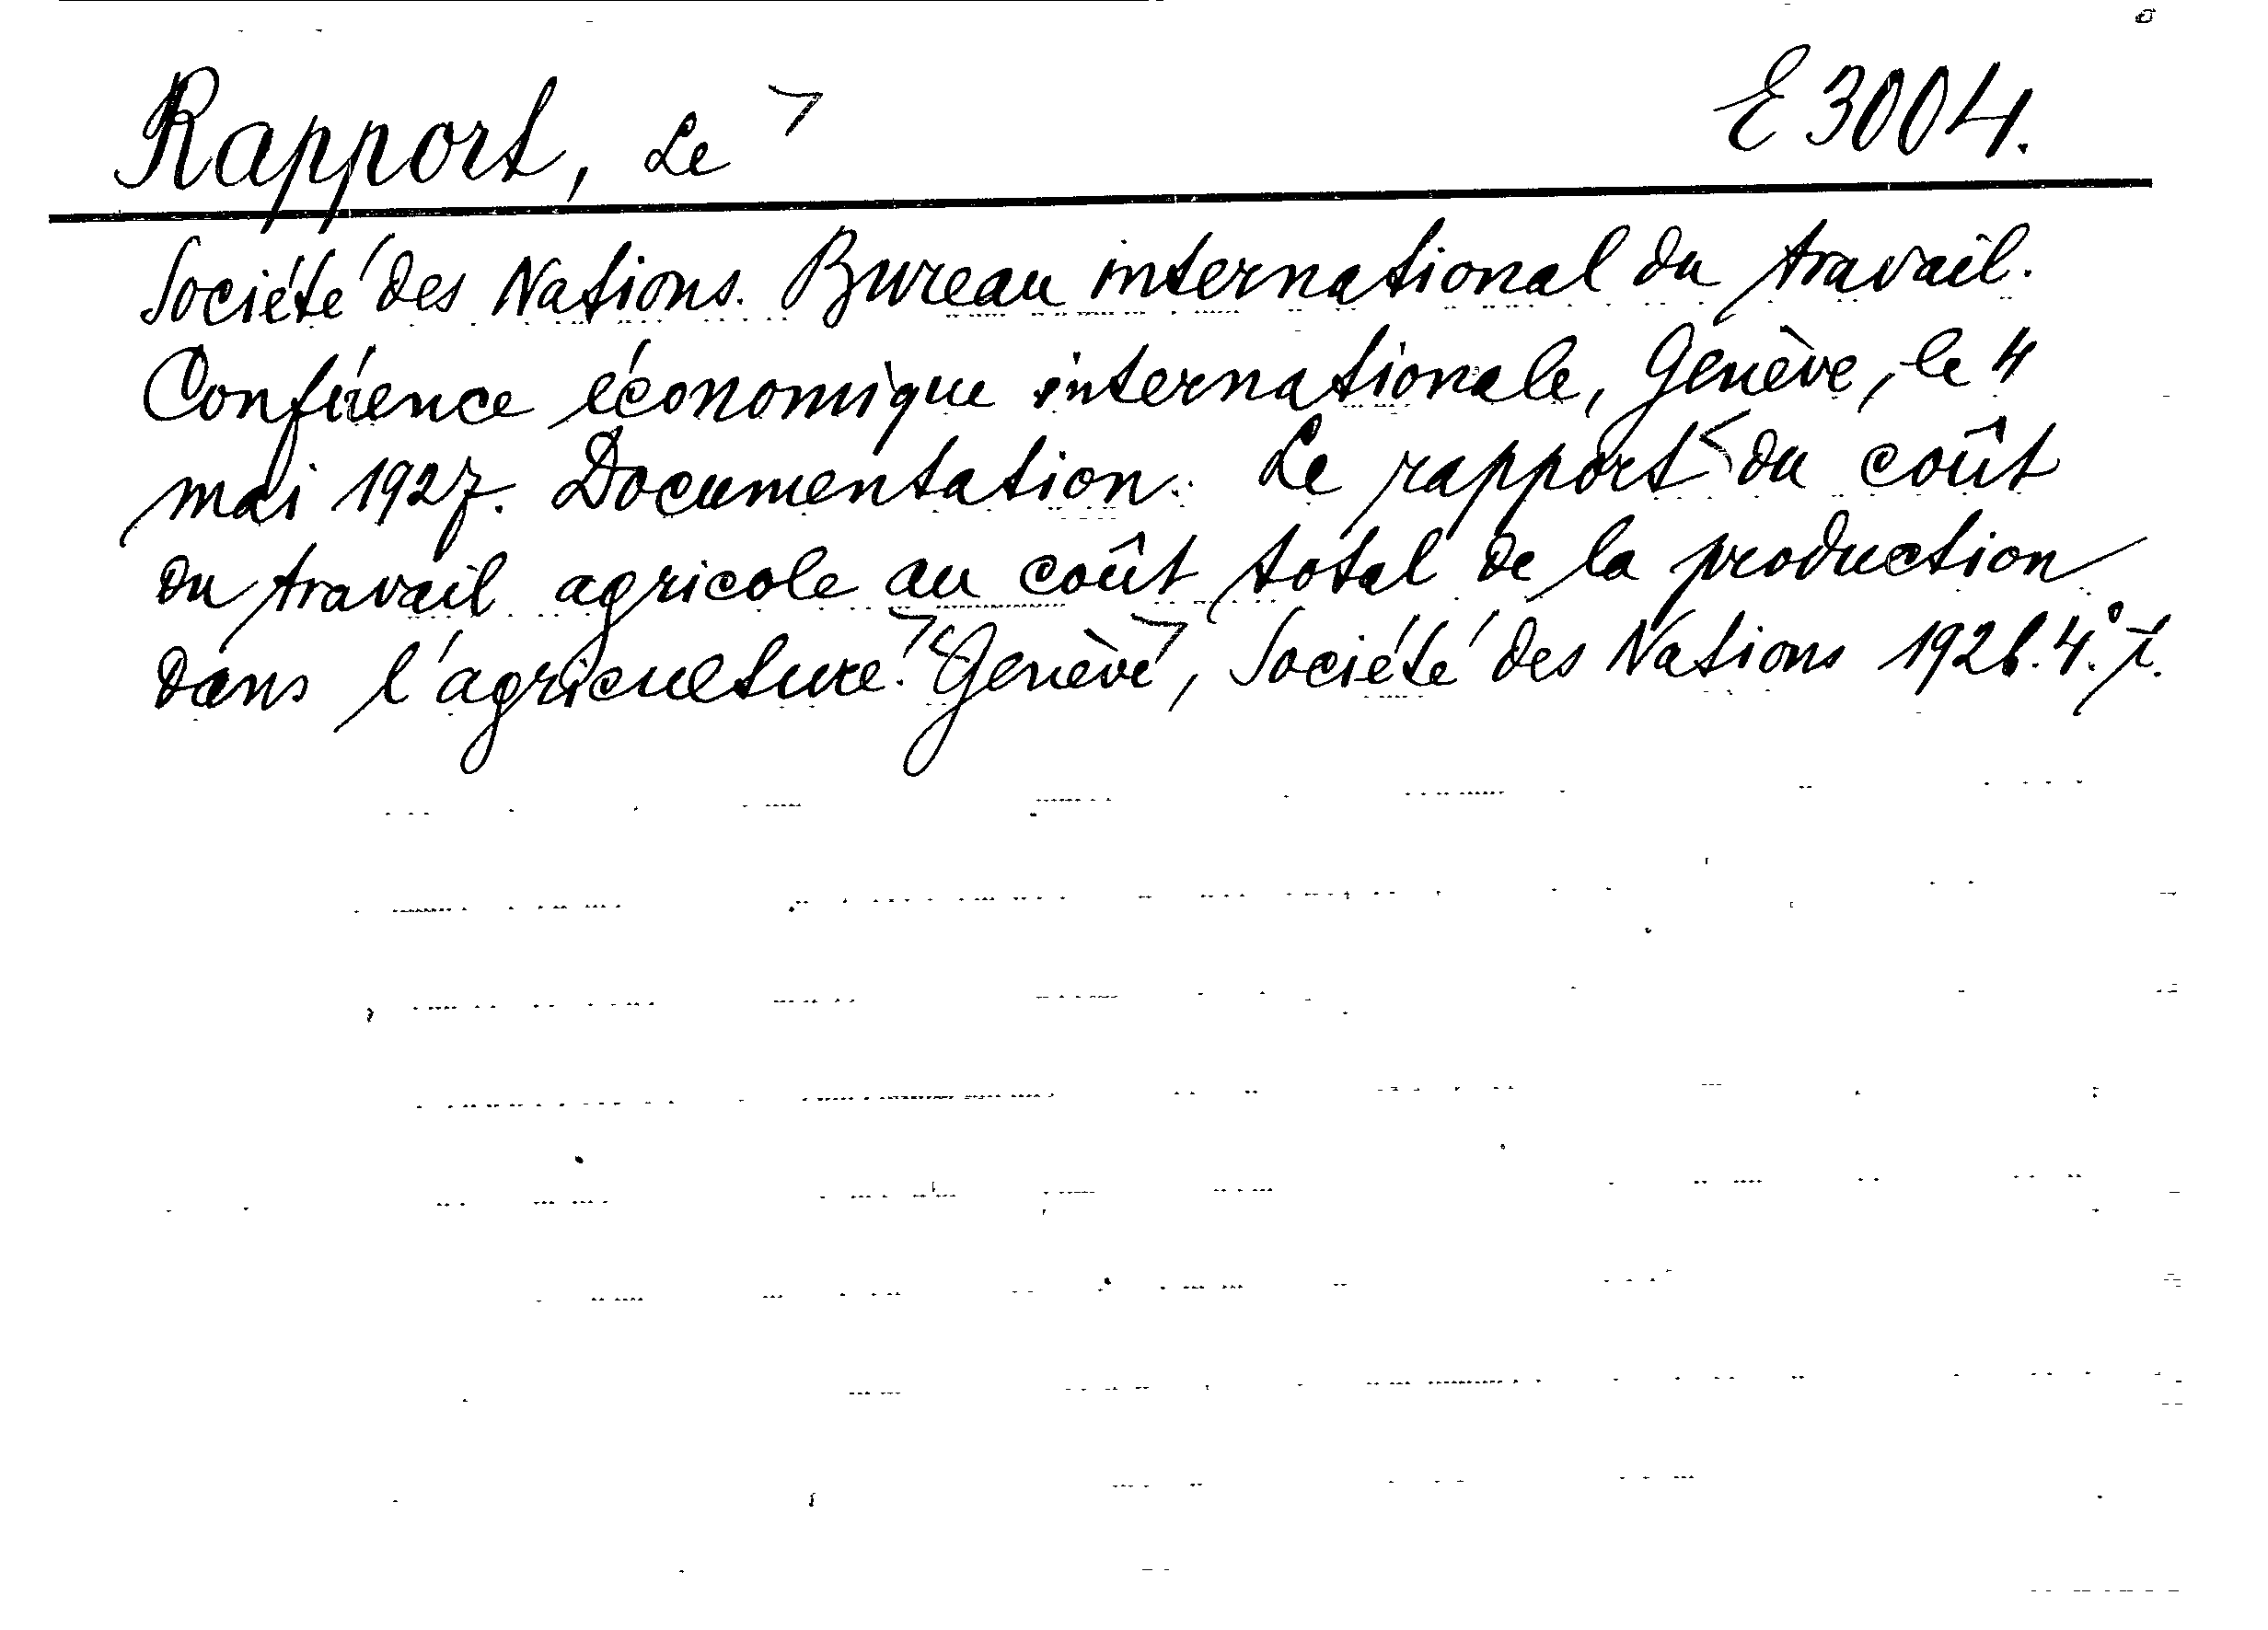 Rapport, Le ㄱ E 3004.
Société des Nations. Bureau international du travail.
Conférence économique internationale, Genève, le 4
mai 1927. Documentation. Le rapport < du coût
du travail agricole au coût total de la production
dans l'agriculture. > < Genève >, Société des Nations 1926. 4°. 7.